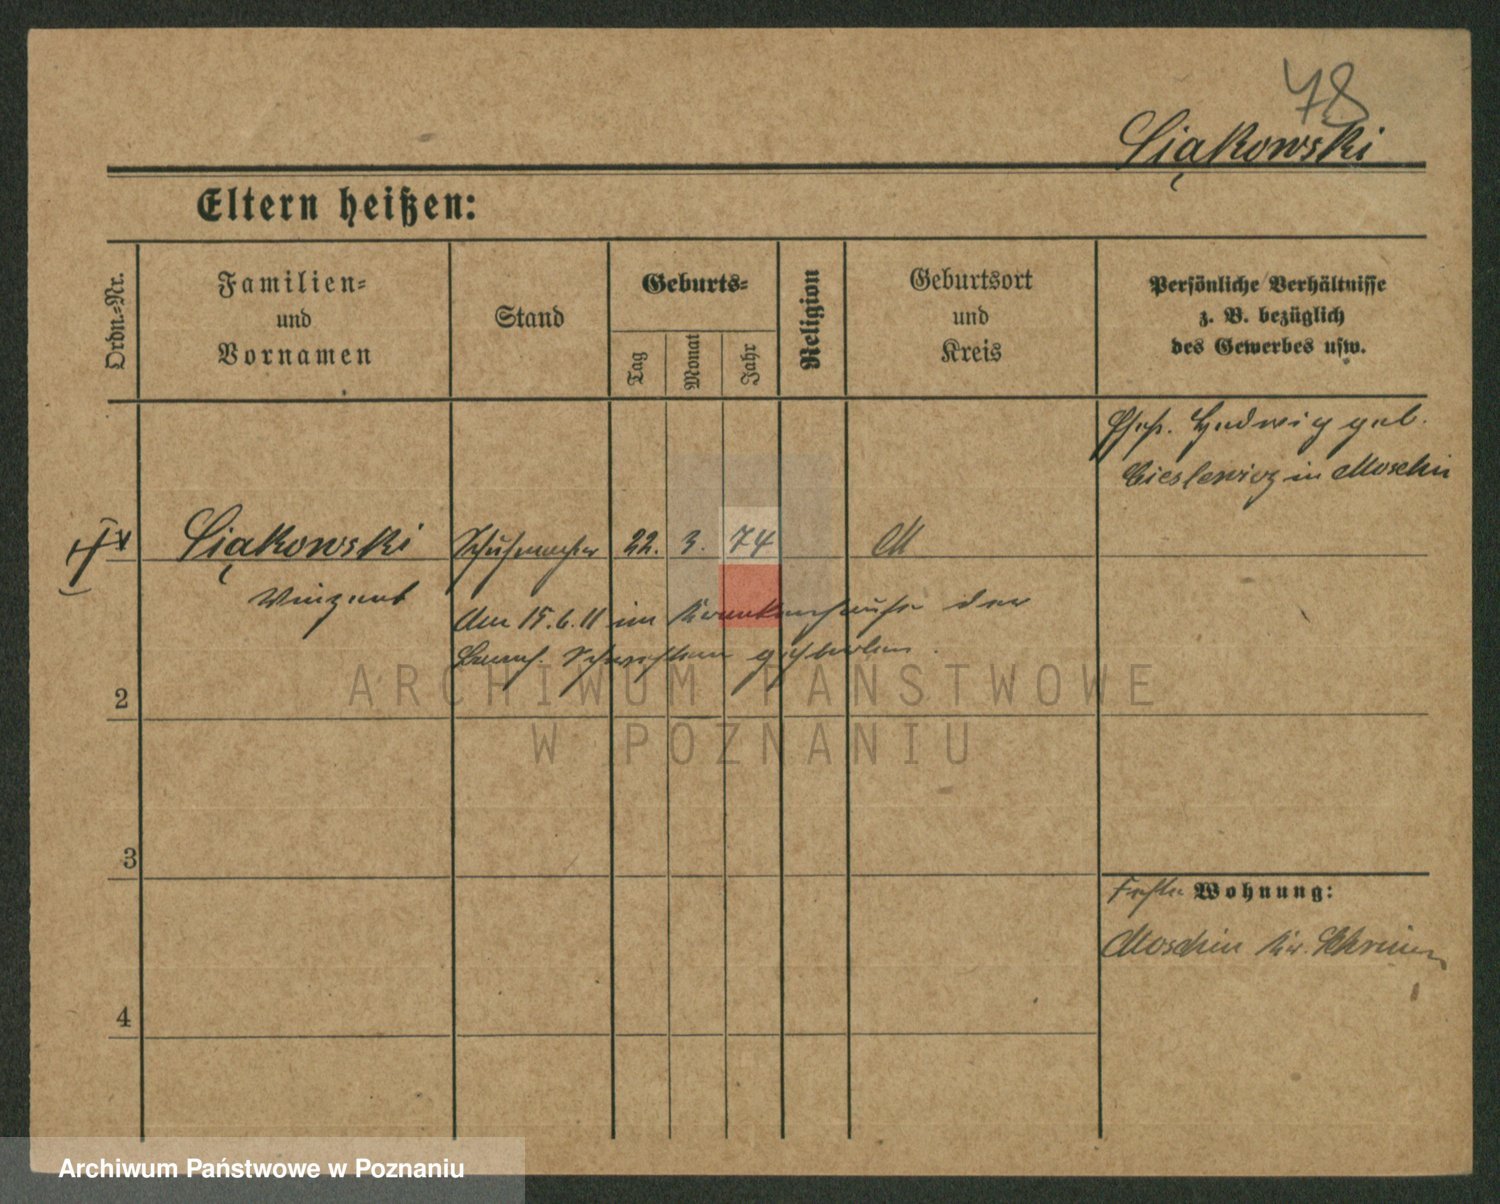 78
Siąkowski
Eltern heißen:
Ordn.-Nr.
Familien-
und
Vornamen
Stand
Geburts-
Tag
Monat
Jahr
Religion
Geburtsort
und
Kreis
Persönliche Verhältnisse
z. B. bezüglich
des Gewerbes usw.
Ehefr. Hedwig geb.
Cieslewicz in Moschin
Siąkowski
Schuhmacher
22. 3. 74
Vinzent
Am 15.6.11 im Krankenhause der
Barmh. Schwestern gestorben.
2
3
4
Wohnung:
Moschin Kr. Schrimm
ARCHIWUM PAŃSTWOWE
W POZNANIU
Archiwum Państwowe w Poznaniu